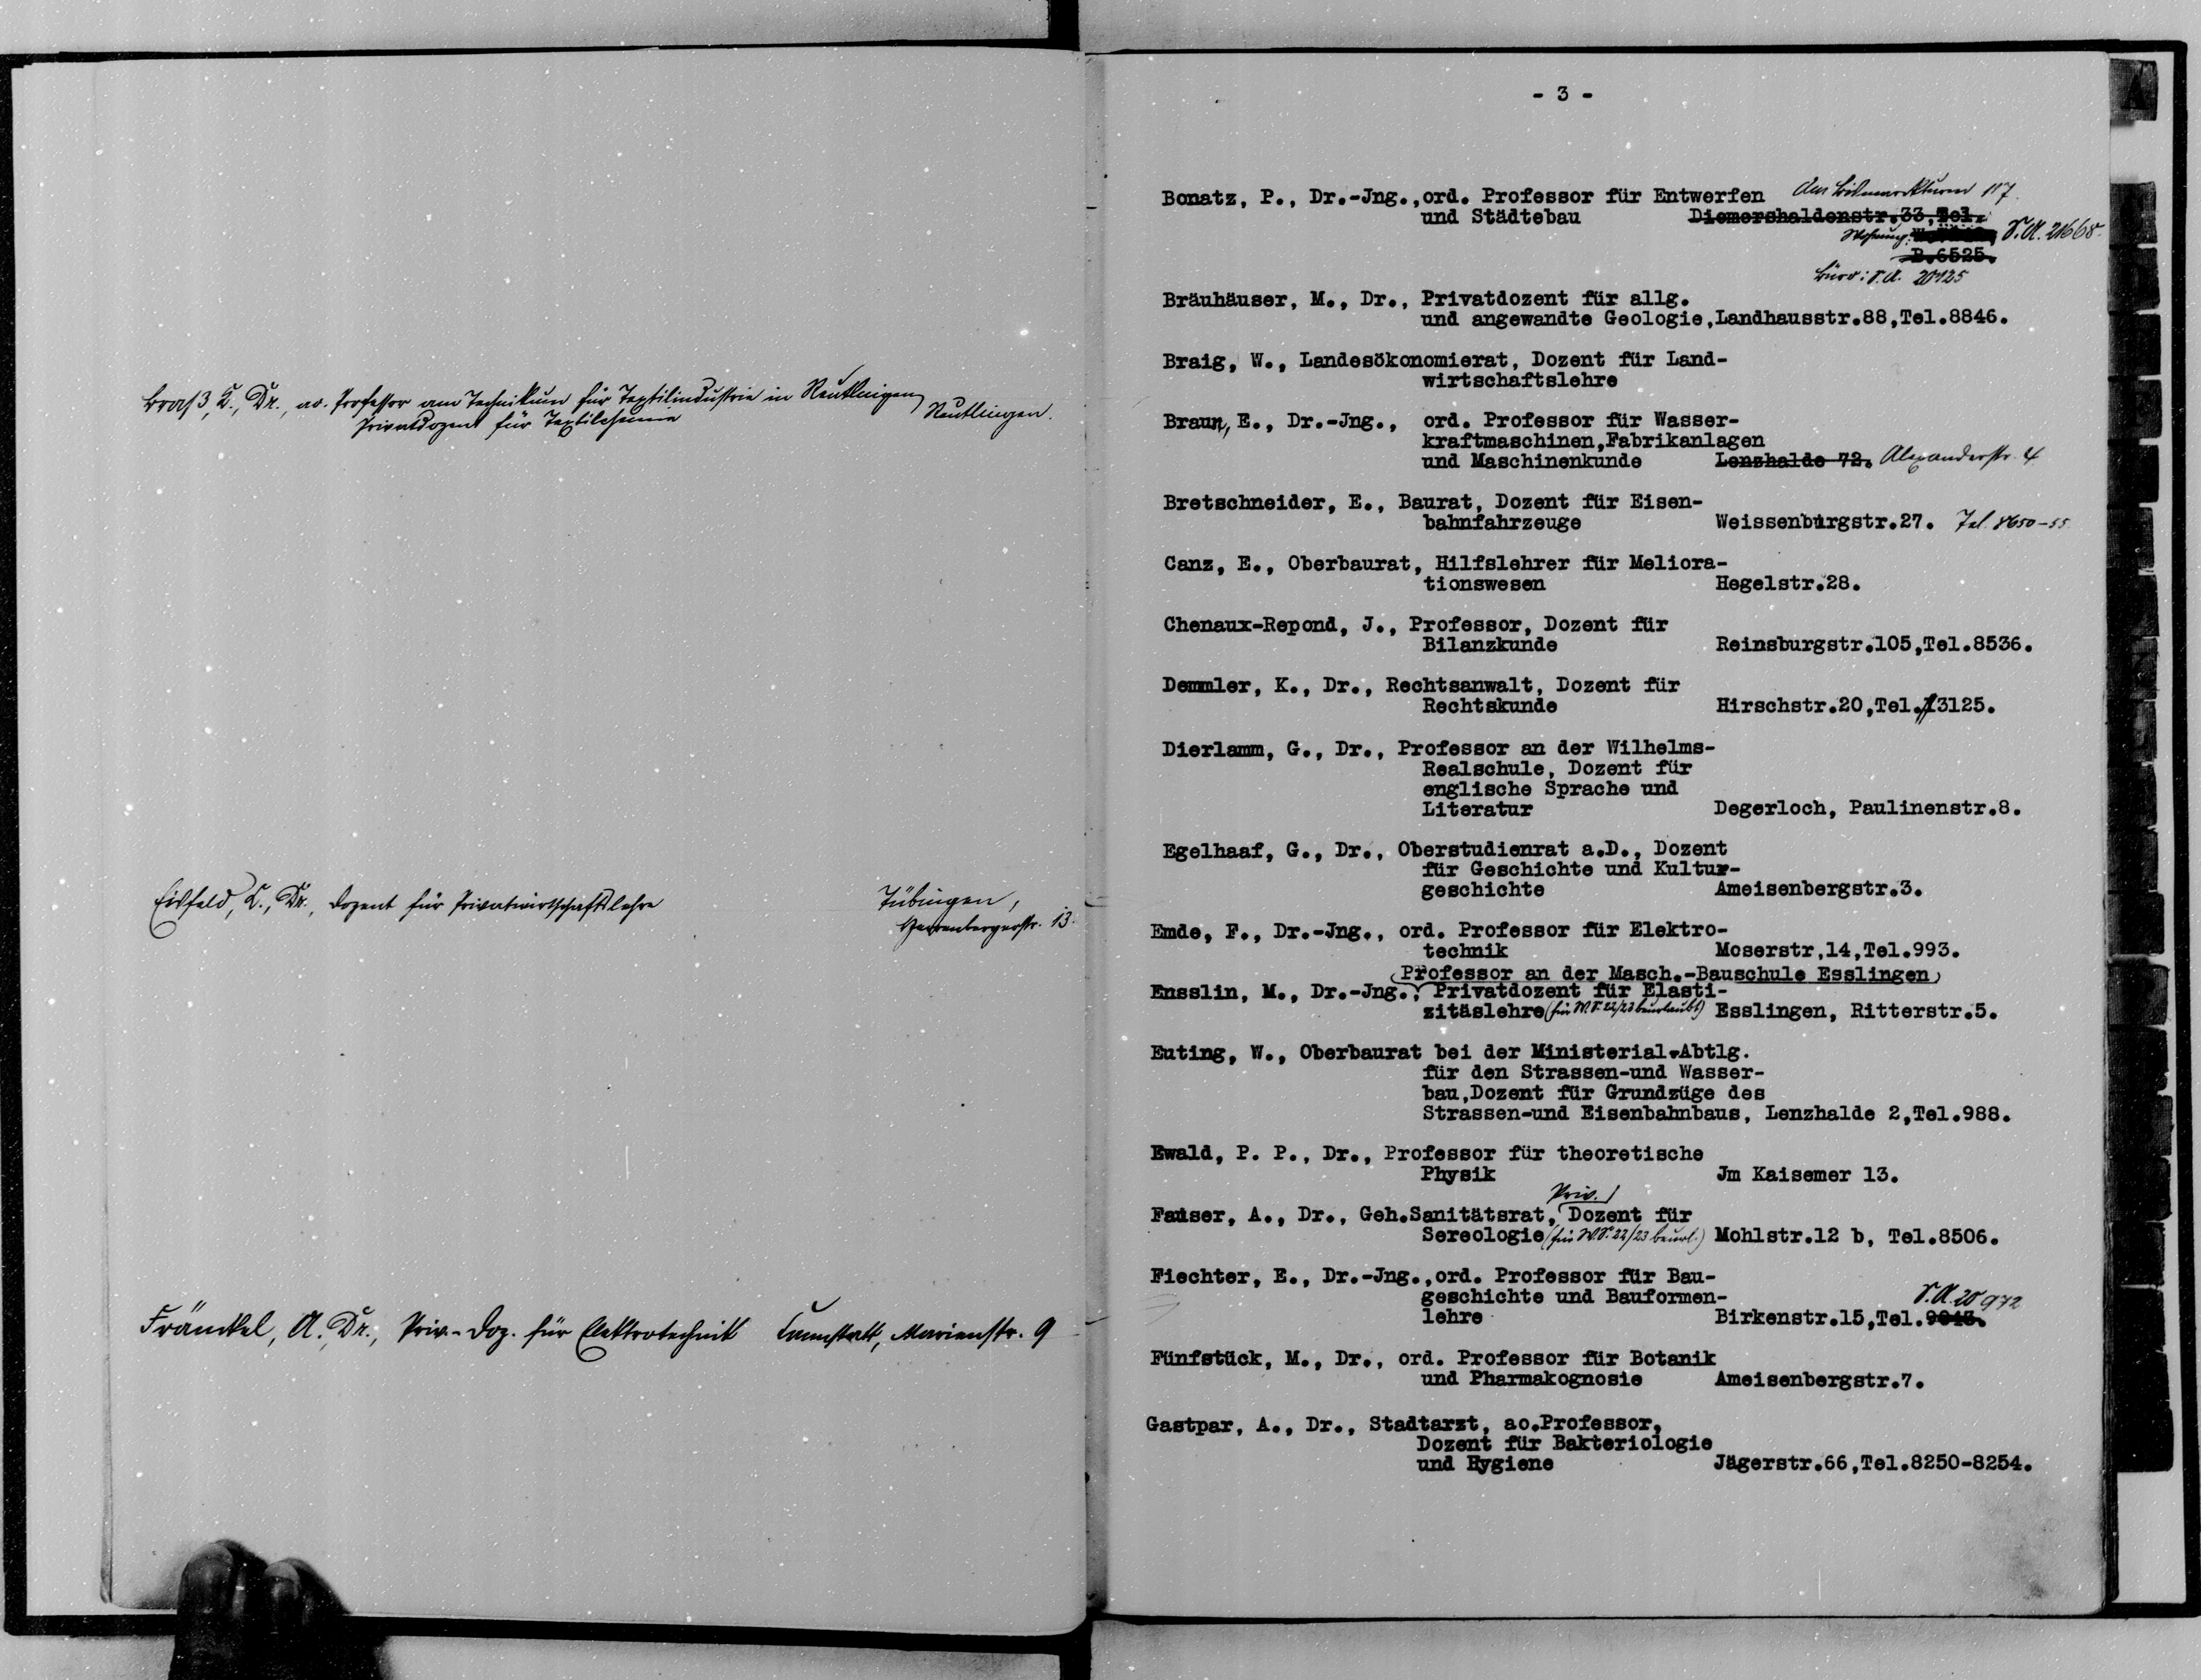 Brass, K., Dr., ao. Professor am Technikum für Textilindustrie in Reutlingen,
Privatdozent für Textilchemie Reutlingen.
Eisfeld, C., Dr., Dozent für Privatwirtschaftslehre Tübingen,
Herrenbergerstr. 13.
Fränckel, A. Dr., Priv.-Doz. für Elektrotechnik Cannstatt, Marienstr. 9
- 3 -
Bonatz, P., Dr.-Jng., ord. Professor für Entwerfen Am Bismarckturm 117.
und Städtebau Diemershaldenstr.33,Tel.
Wohnung: S.A. 21668.
B.6525.
Büro: S.A. 20125
Bräuhäuser, M., Dr., Privatdozent für allg.
und angewandte Geologie,Landhausstr.88,Tel.8846.
Braig, W., Landesökonomierat, Dozent für Land-
wirtschaftslehre
Braun, E., Dr.-Jng., ord. Professor für Wasser-
kraftmaschinen,Fabrikanlagen
und Maschinenkunde Lenzhalde 72. Alexanderstr. 4
Bretschneider, E., Baurat, Dozent für Eisen-
bahnfahrzeuge Weissenburgstr.27. Tel. 8650-55.
Canz, E., Oberbaurat, Hilfslehrer für Meliora-
tionswesen Hegelstr.28.
Chenaux-Repond, J., Professor, Dozent für
Bilanzkunde Reinsburgstr.105,Tel.8536.
Demmler, K., Dr., Rechtsanwalt, Dozent für
Rechtskunde Hirschstr.20,Tel.13125.
Dierlamm, G., Dr., Professor an der Wilhelms-
Realschule, Dozent für
englische Sprache und
Literatur Degerloch, Paulinenstr.8.
Egelhaaf, G., Dr., Oberstudienrat a.D., Dozent
für Geschichte und Kultur-
geschichte Ameisenbergstr.3.
Emde, F., Dr.-Jng., ord. Professor für Elektro-
technik Moserstr,14,Tel.993.
(Professor an der Masch.-Bauschule Esslingen)
Ensslin, M., Dr.-Jng., Privatdozent für Elasti-
zitäslehre (für W.S. 22/23 beurlaubt) Esslingen, Ritterstr.5.
Euting, W., Oberbaurat bei der Ministerial-Abtlg.
für den Strassen-und Wasser-
bau,Dozent für Grundzüge des
Strassen-und Eisenbahnbaus, Lenzhalde 2,Tel.988.
Ewald, P. P., Dr., Professor für theoretische
Physik Jm Kaisemer 13.
Priv.
Fauser, A., Dr., Geh.Sanitätsrat, Dozent für
Sereologie (für W.S. 22/23 beurl.) Mohlstr.12 b, Tel.8506.
Fiechter, E., Dr.-Jng.,ord. Professor für Bau-
geschichte und Bauformen- S.A. 20972
lehre Birkenstr.15,Tel.
Fünfstück, M., Dr., ord. Professor für Botanik
und Pharmakognosie Ameisenbergstr.7.
Gastpar, A., Dr., Stadtarzt, ao.Professor,
Dozent für Bakteriologie
und Hygiene Jägerstr.66,Tel.8250-8254.